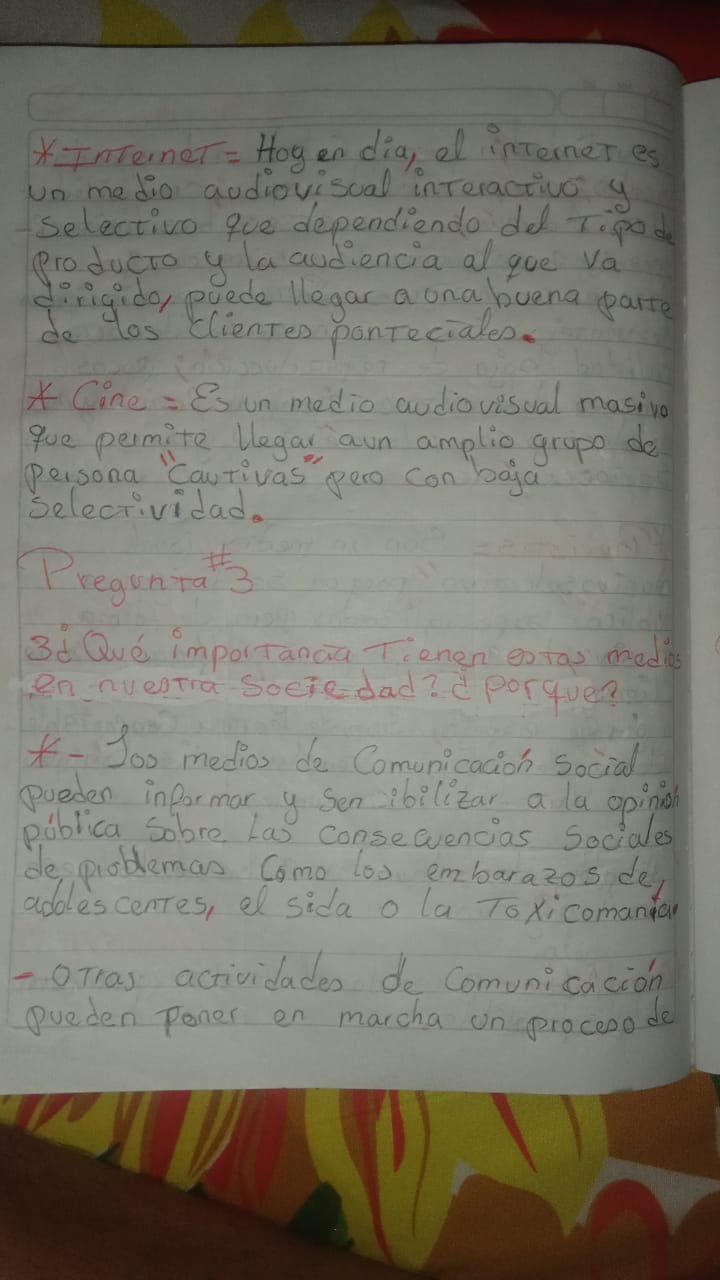 * Internet = Hoy en día, el internet es
un medio audiovisual interactivo y
selectivo que dependiendo del Tipo de
producto y la audiencia al que va
dirigido, puede llegar a una buena parte
de los clientes ponteciales.
* Cine = Es un medio audiovisual masivo
que permite llegar aun amplio grupo de
persona "Cautivas" pero con baja
selectividad.
Pregunta #3
3¿ Qué importancia Tienen estas medios
en nuestra sociedad? ¿ porque?
* - Los medios de Comunicación Social
pueden informar y sen ibilizar a la opinión
pública sobre las consecuencias sociales
de problemas Como los embarazos de,
adolescentes, el sida o la Toxicomanía.
- Otras actividades de Comunicación
pueden poner en marcha un proceso de